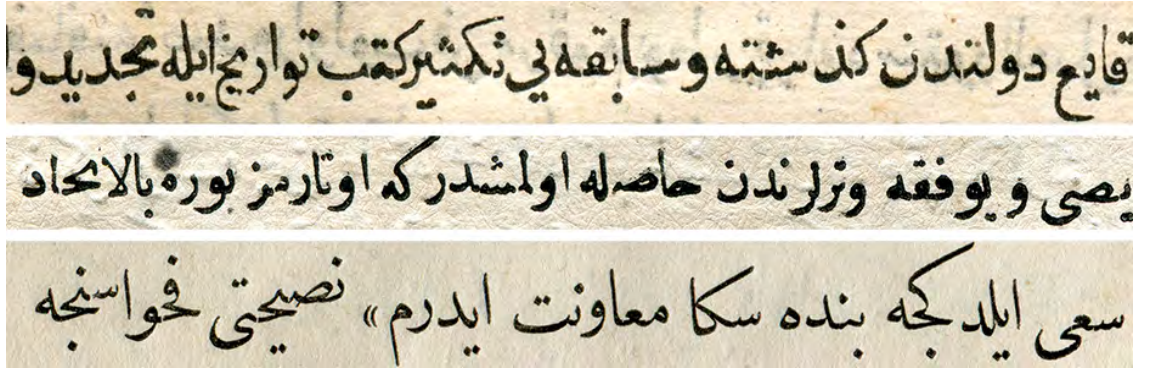 قایع دولتندن كذشته وسابقه یی تكثیر كتب تواریخ ایله تجدید و
یصی و بوفقه وترلرندن حاصله اولمشدر كه اوتارمز بوره بالاتحاد
سعی ایلدكجه بنده سكا معاونت ایدرم» نصیحتی فحواسنجه